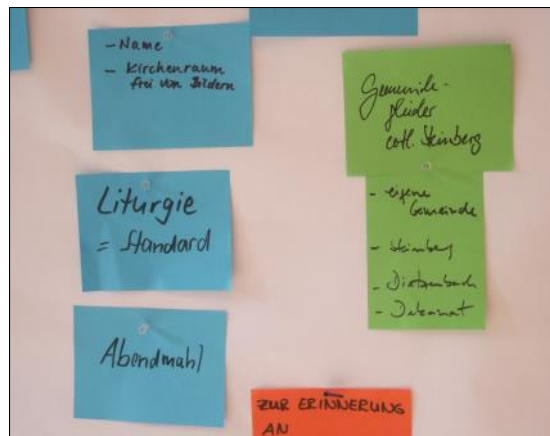 - Name
- Kirchenraum
frei von Bildern
Liturgie
= Standard
Abendmahl
Gemeinde-
glieder
evtl. Steinberg
- eigene
Gemeinde
- Steinberg
- Dietzenbach
- Dekanat
ZUR ERINNERUNG
AN